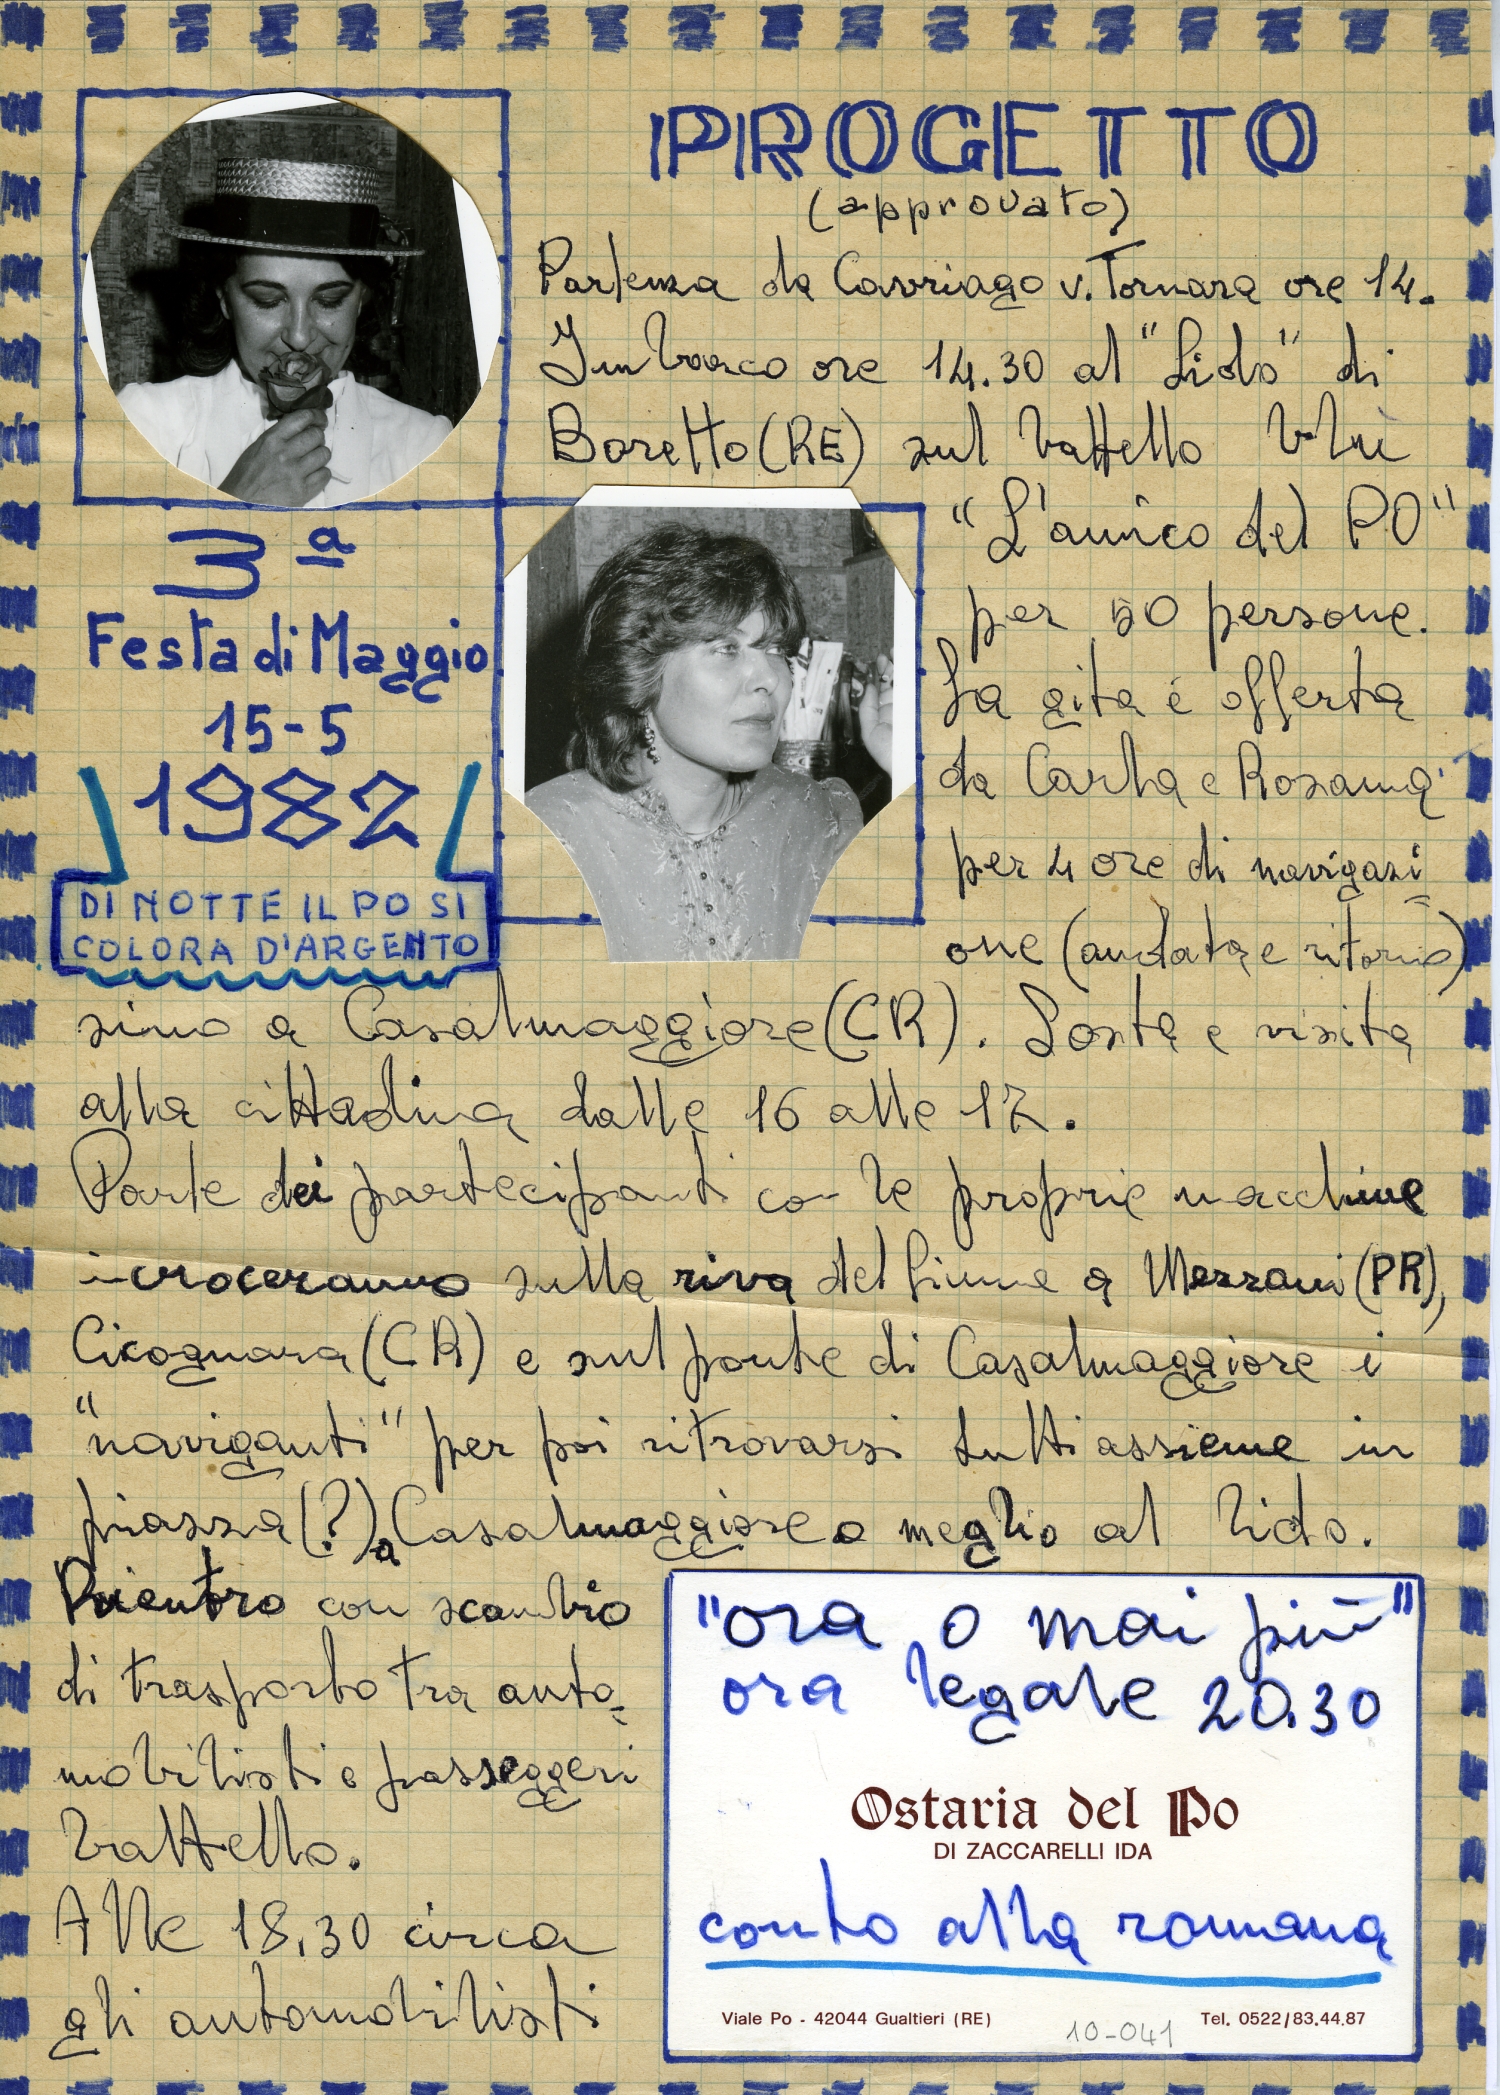 PROGETTO
(approvato)
Partenza da Cavriago v. Tornara ore 14.
Imbarco ore 14.30 al "Lido" di
Boretto (RE) sul battello blù
"L'amico del PO"
per 50 persone.
La gita è offerta
da Carla e Rosanna
per 4 ore di navigazi=
one (andata e ritorno)
3ª
Festa di Maggio
15-5
1982
DI NOTTE IL PO SI
COLORA D'ARGENTO
sino a Casalmaggiore (CR). Sosta e visita
alla cittadina dalle 16 alle 17.
Parte dei partecipanti con le proprie macchine
incroceranno sulla riva del fiume a Mezzani (PR),
Cicognara (CR) e sul ponte di Casalmaggiore i
"naviganti" per poi ritrovarsi tutti assieme in
piazza (?) a Casalmaggiore o meglio al lido.
Rientro con scambio
di trasporto tra auto=
mobilisti e passeggeri
battello.
Alle 18,30 circa
gli automobilisti
"ora o mai più"
ora legale 20.30
Ostaria del Po
DI ZACCARELLI IDA
conto alla romana
Viale Po - 42044 Gualtieri (RE) Tel. 0522/83.44.87
10-041